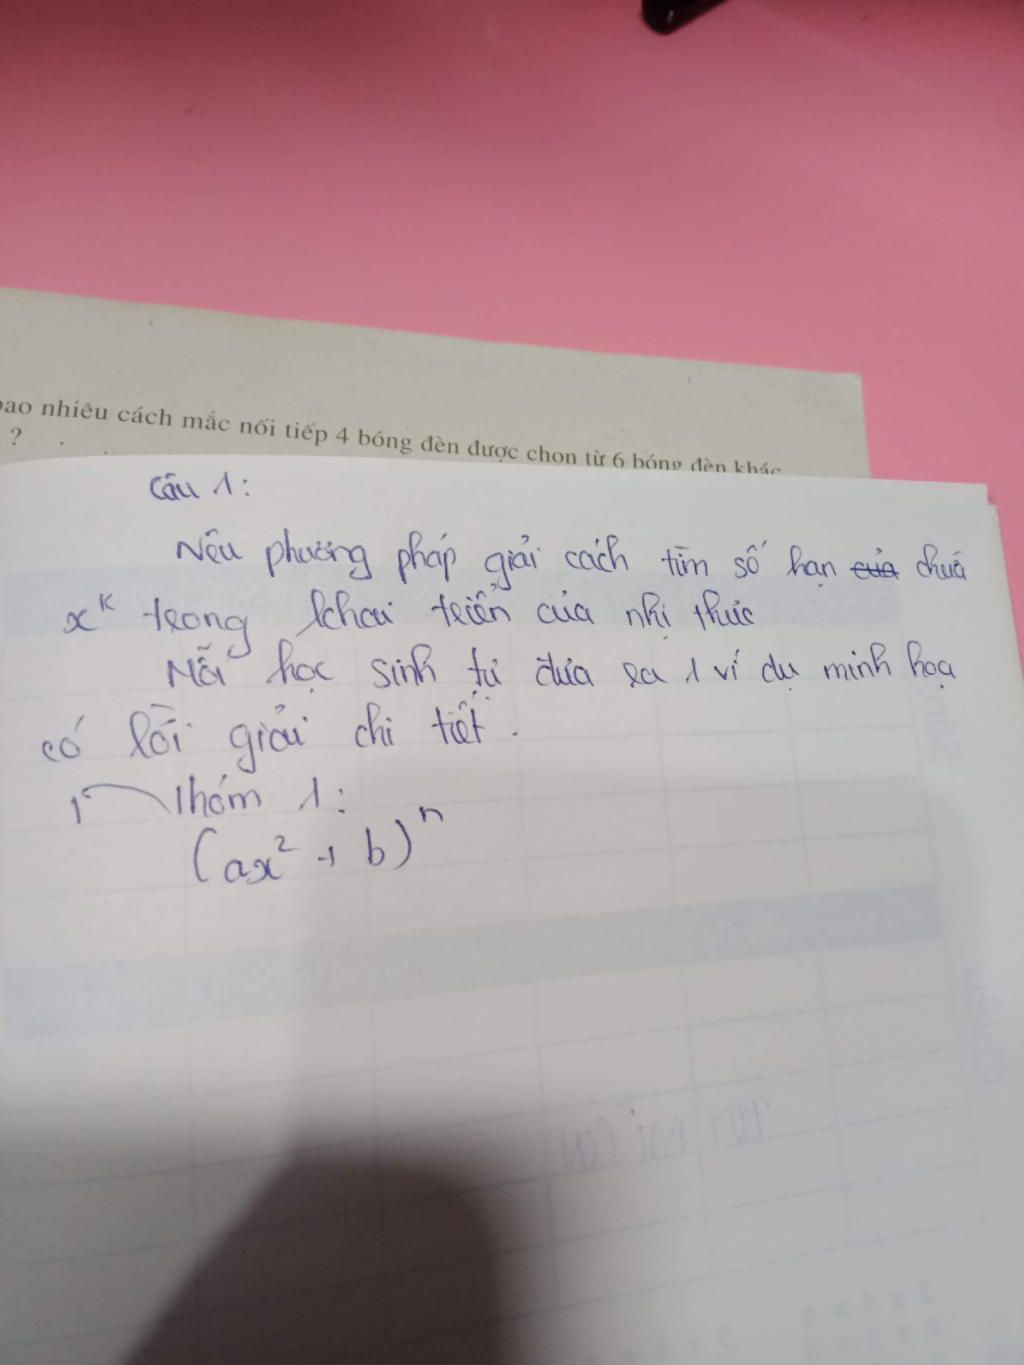 bao nhiêu cách mắc nối tiếp 4 bóng đèn được chọn từ 6 bóng đèn khác
?
Câu 1:
Nêu phương pháp giải cách tìm số hạn của chứa
x^k trong khai triển của nhị thức
Mỗi học sinh tự đưa ra 1 ví dụ minh họa
có lời giải chi tiết.
Nhóm 1:
(ax² + b)^n